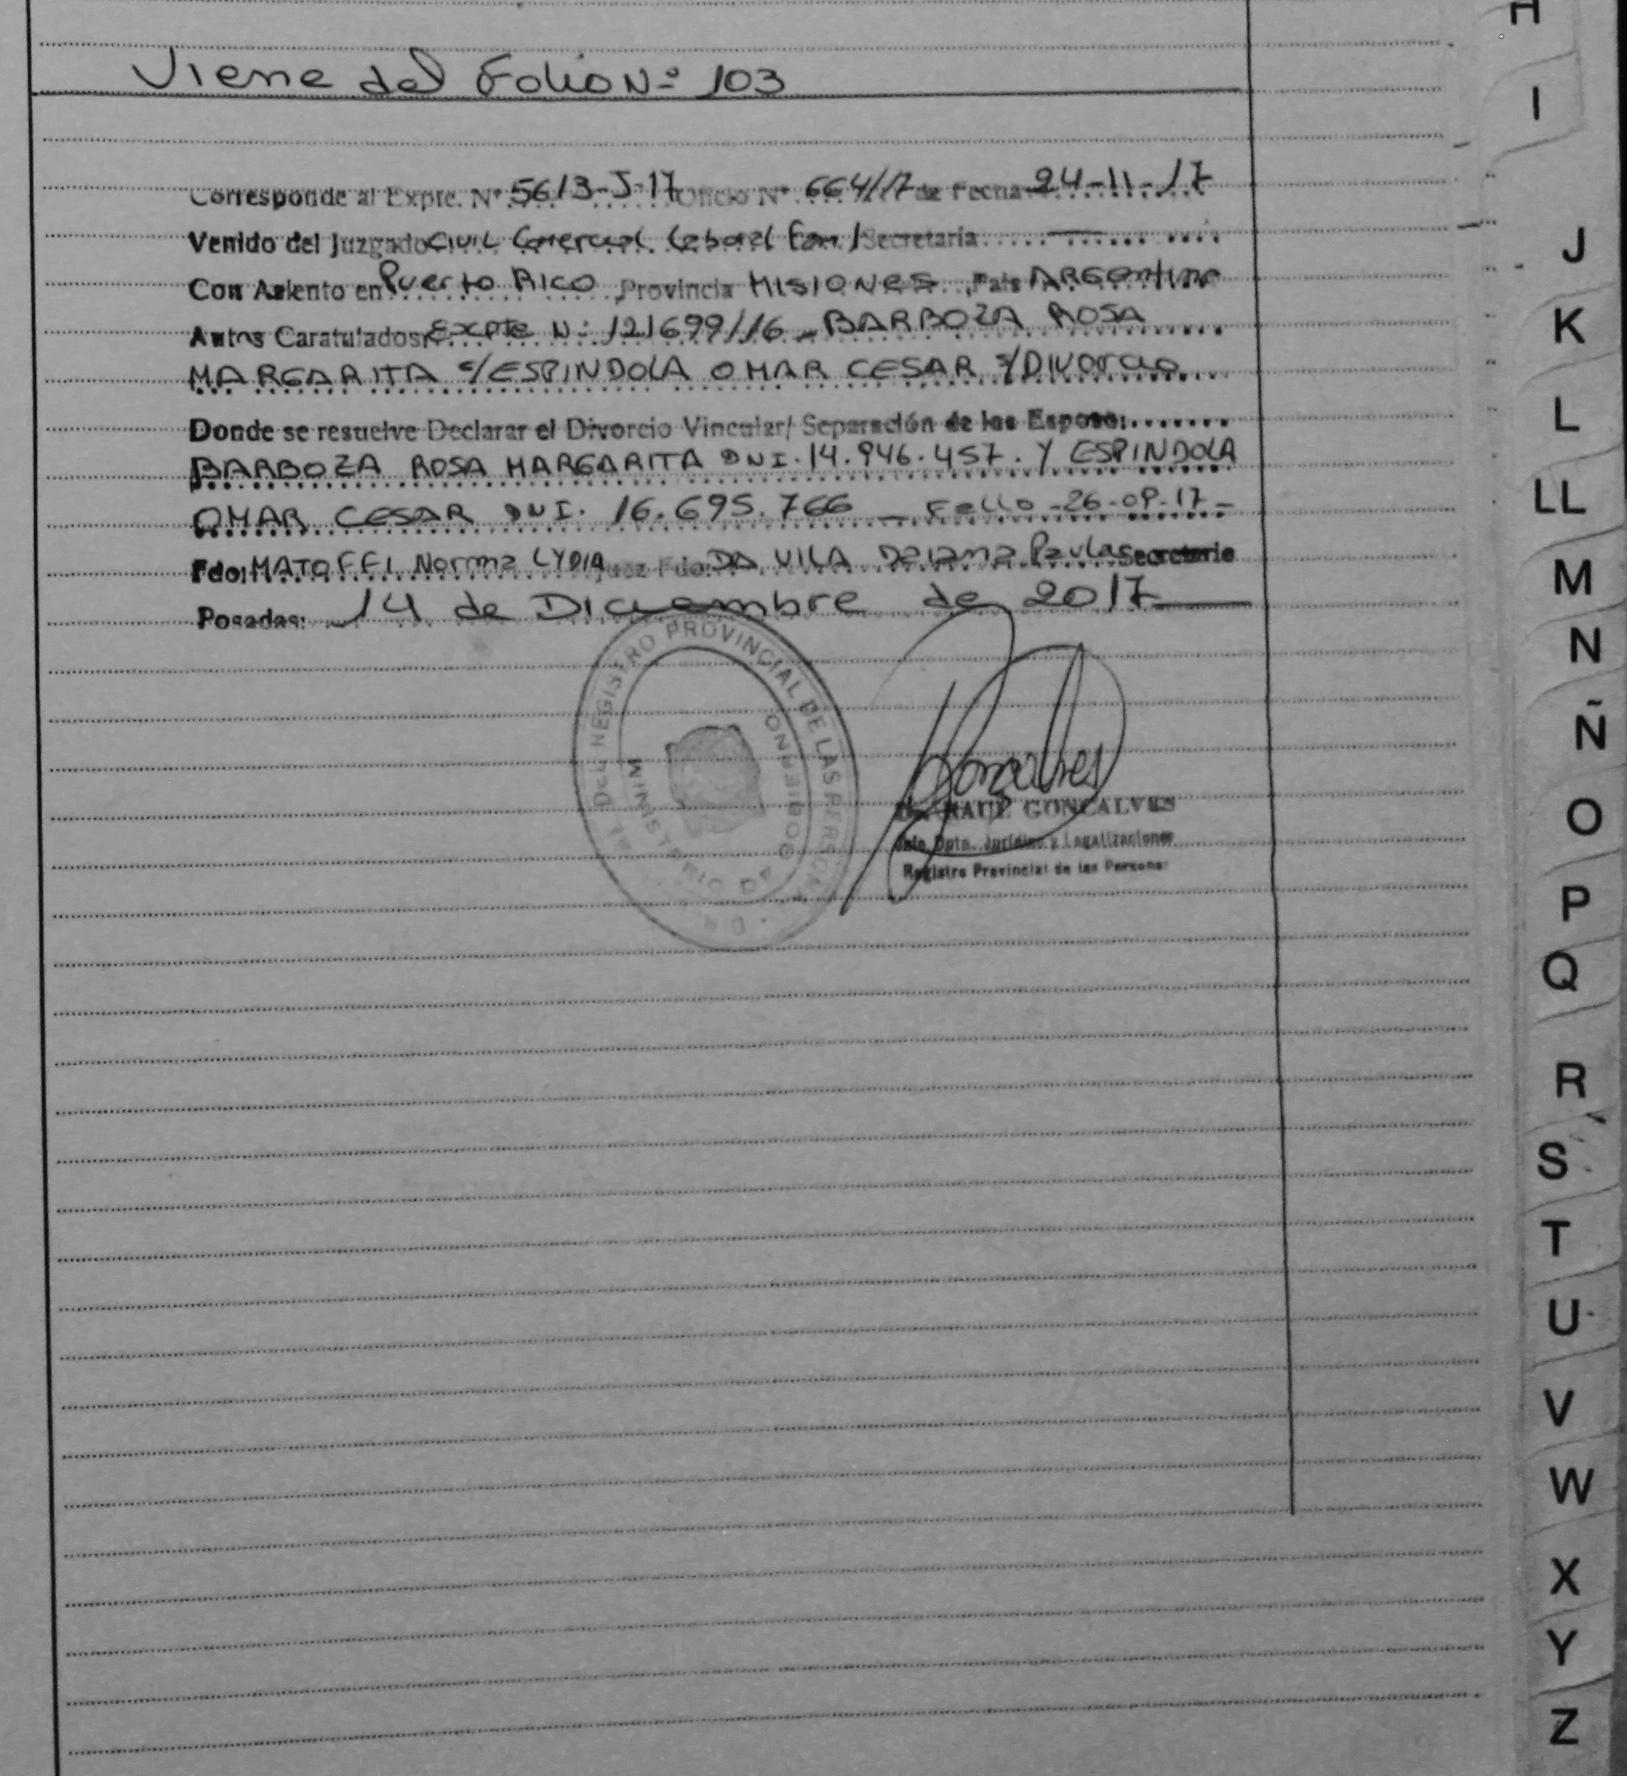 Viene del Folio Nº 103
Corresponde al Expte. Nº 5613-J-17 Oficio Nº 664/17 de Fecha 24-11-17
Venido del Juzgado Civil Comercial Laboral Fam/ Secretaria
Con Asiento en Puerto Rico Provincia MISIONES, Pais ARGentina
Autos Caratulados: Expte Nº 121699/16 - BARBOZA ROSA
MARGARITA c/ ESPINDOLA OMAR CESAR s/ Divorcio
Donde se resuelve Declarar el Divorcio Vincular/ Separación de los Esposos:
BARBOZA ROSA MARGARITA DNI. 14.946.457. Y ESPINDOLA
OMAR CESAR DNI. 16.695.766 - Fallo - 26-09-17 -
Fdo: MATOFFI Norma LYDIA Juez Fdo: DA VILA Paula Secretario
Posadas: 14 de Diciembre de 2017
REGISTRO PROVINCIAL DE LAS PERSONAS
MINISTERIO DE GOBIERNO
Dr. RAUL GONCALVES
Jefe Dpto. Jurídico y Legalizaciones
Registro Provincial de las Personas
H
I
J
K
L
LL
M
N
Ñ
O
P
Q
R
S
T
U
V
W
X
Y
Z